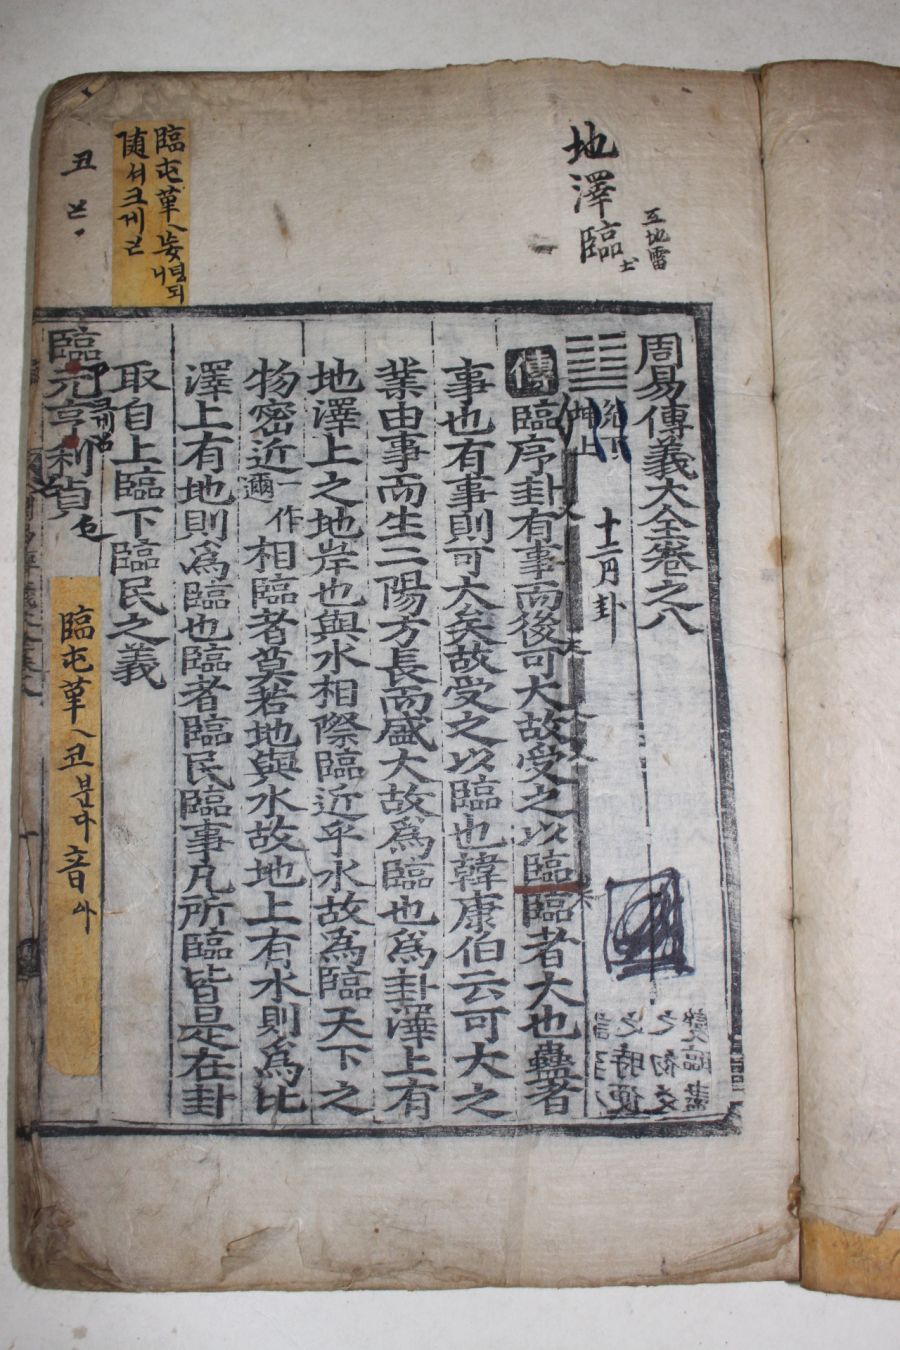 地澤臨
互地雷
周易傳義大全卷之八
兌下
坤上
十二月卦
傳臨序卦有事而後可大故受之以臨臨者大也蠱者
事也有事則可大矣故受之以臨也韓康伯云可大之
業由事而生二陽方長而盛大故爲臨也爲卦澤上有
地澤上之地岸也與水相際臨近乎水故為臨天下之
物密近一作邇相臨者莫若地與水故地上有水則爲比
澤上有地則爲臨也臨者臨民臨事凡所臨皆是在卦
取自上臨下臨民之義
臨元亨利貞
臨屯
隨
丑
臨屯